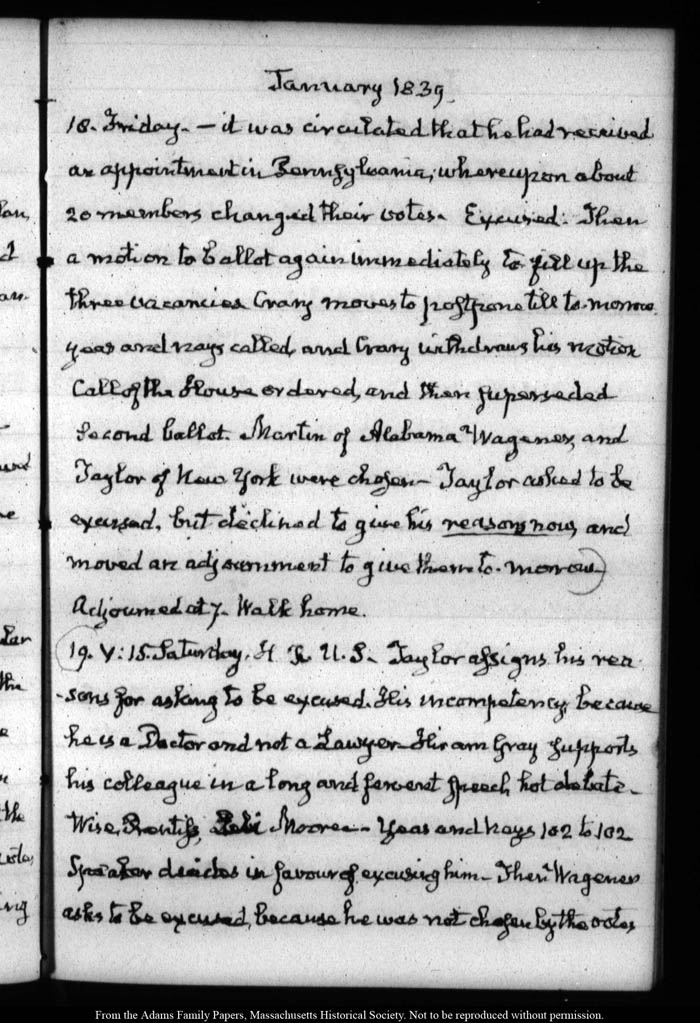 January 1839.
18. Friday. — it was circulated that he had received
an appointment in Pennsylvania; whereupon about
20 members changed their votes. Excused. Then
a motion to ballot again immediately to fill up the
three vacancies Crary moves to postpone till to-morrow.
yeas and nays called, and Crary withdraws his motion
Call of the House ordered, and then superseded
Second ballot. Martin of Alabama Wagener, and
Taylor of New York were chosen — Taylor asked to be
excused, but declined to give his reasons now, and
moved an adjournment to give them to-morrow
Adjourned at 7. Walk home.
19. V:15. Saturday. H. R. U.S. Taylor assigns his rea
-sons for asking to be excused. His incompetency, because
he is a Doctor and not a Lawyer — Hiram Gray supports
his colleague in a long and fervent speech, hot debate —
Wise, Prentiss, Moore — Yeas and Nays 102 to 102
Speaker decides in favour of excusing him — Then Wagener
asks to be excused, because he was not chosen by the votes
From the Adams Family Papers, Massachusetts Historical Society. Not to be reproduced without permission.